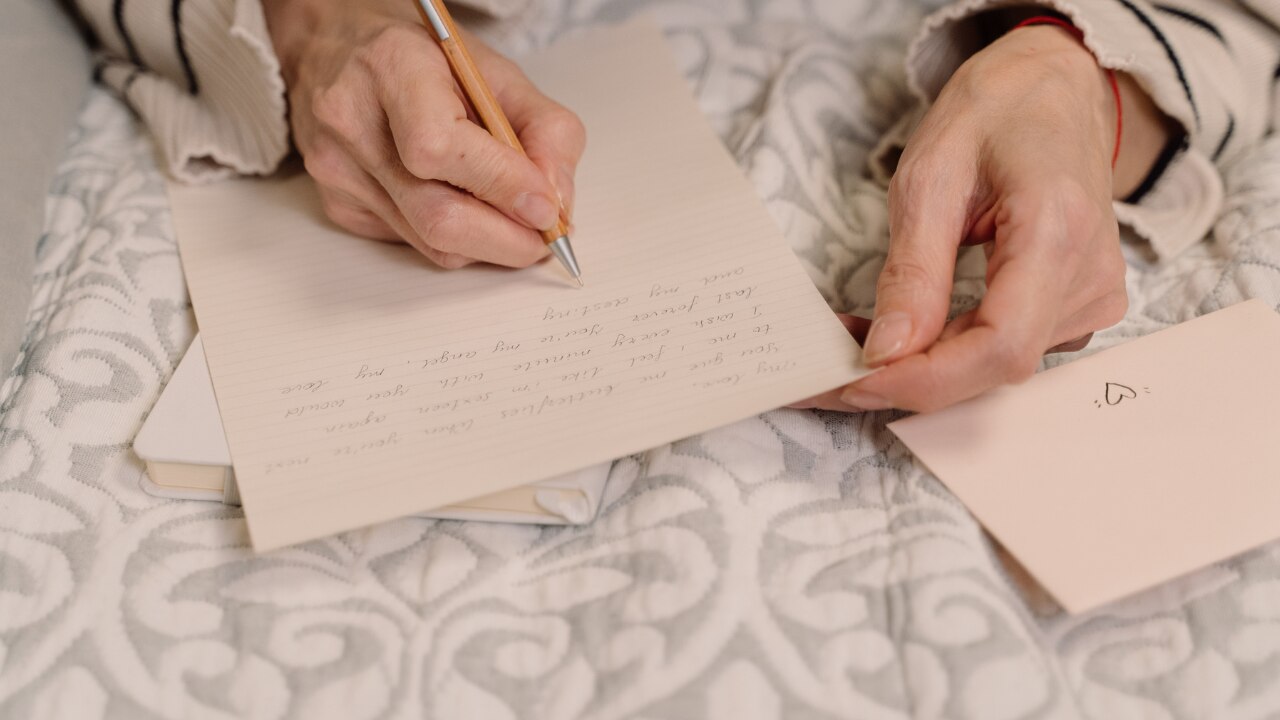 My love,
you give me butterflies when you're next
to me, i feel like i'm sixteen again
I wish every minute with you would
last forever you're my angel, my love
and my destiny